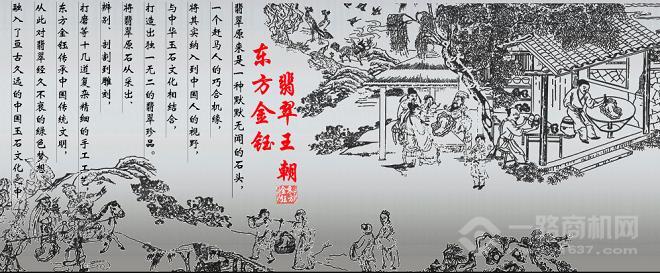 翡翠王朝
东方金钰
东方金钰
翡翠原来是一种默默无闻的石头，
一个赶马人的巧合机缘，
将其实纳入到中国人的视野，
与中华玉石文化相结合，
打造出独一无二的翡翠珍品。
将翡翠原石从采出、
辨别、剖割到雕刻、
打磨等十几道复杂精细的手工工
东方金钰传承中国传统文明，
从此对翡翠经久不衰的绿色梦想
融入了亘古久远的中国玉石文化之中
一路商机网
1637.com